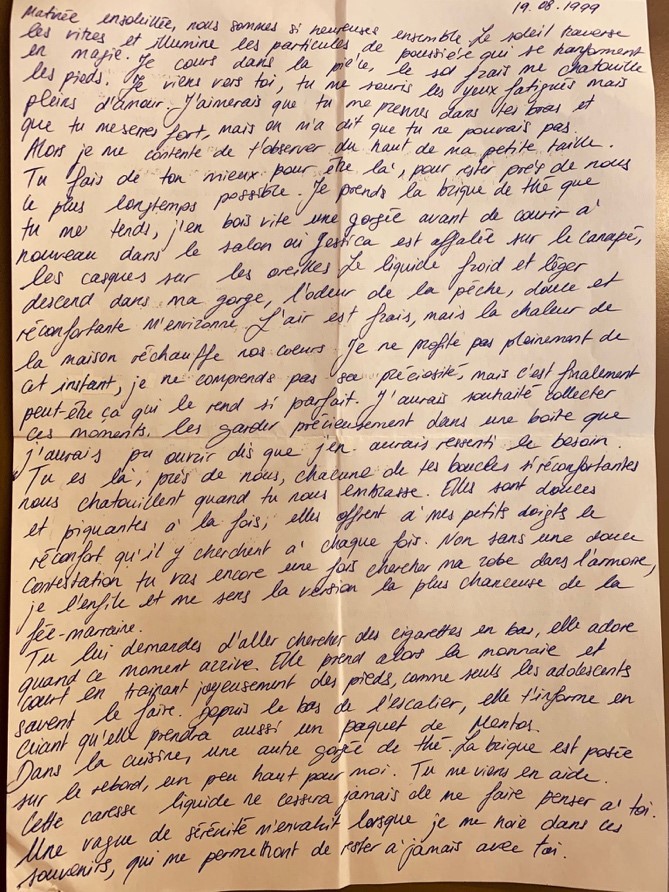 19.08.1999
Matinée ensoleillée, nous sommes si heureuses ensemble. Le soleil traverse
les vitres et illumine les particules de poussière qui se transforment
en magie. Je cours dans la pièce, le sol frais me chatouille
les pieds. Je viens vers toi, tu me souris les yeux fatigués mais
pleins d'amour. J'aimerais que tu me prennes dans tes bras et
que tu me serres fort, mais on m'a dit que tu ne pouvais pas.
Alors je me contente de t'observer du haut de ma petite taille.
Tu fais de ton mieux pour être là, pour rester près de nous
le plus longtemps possible. Je prends la brique de thé que
tu me tends, j'en bois vite une gorgée avant de courir à
nouveau dans le salon où Jessica est affalée sur le canapé,
les casques sur les oreilles. Le liquide froid et léger
descend dans ma gorge, l'odeur de la pêche, douce et
réconfortante m'environne. L'air est frais, mais la chaleur de
la maison réchauffe nos coeurs. Je ne profite pas pleinement de
cet instant, je ne comprends pas sa préciosité, mais c'est finalement
peut-être ça qui le rend si parfait. J'aurais souhaité collecter
ces moments, les garder précieusement dans une boite que
j'aurais pu ouvrir dès que j'en aurais ressenti le besoin.
Tu es là, près de nous, chacune de tes boucles si réconfortantes
nous chatouillent quand tu nous embrasse. Elles sont douces
et piquantes à la fois, elles offrent à mes petits doigts le
réconfort qu'il y cherchent à chaque fois. Non sans une douce
contestation tu vas encore une fois chercher ma robe dans l'armoire,
je l'enfile et me sens la version la plus chanceuse de la
fée-marraine.
Tu lui demandes d'aller chercher des cigarettes en bas, elle adore
quand ce moment arrive. Elle prend alors la monnaie et
court en trainant joyeusement des pieds, comme seuls les adolescents
savent le faire. Depuis le bas de l'escalier, elle t'informe en
criant qu'elle prendra aussi un paquet de Mentos.
Dans la cuisine, une autre gorgée de thé. La brique est posée
sur le rebord, un peu haut pour moi. Tu me viens en aide.
Cette caresse liquide ne cessera jamais de me faire penser à toi.
Une vague de sérénité m'envahit lorsque je me noie dans ces
souvenirs, qui me permettront de rester à jamais avec toi.